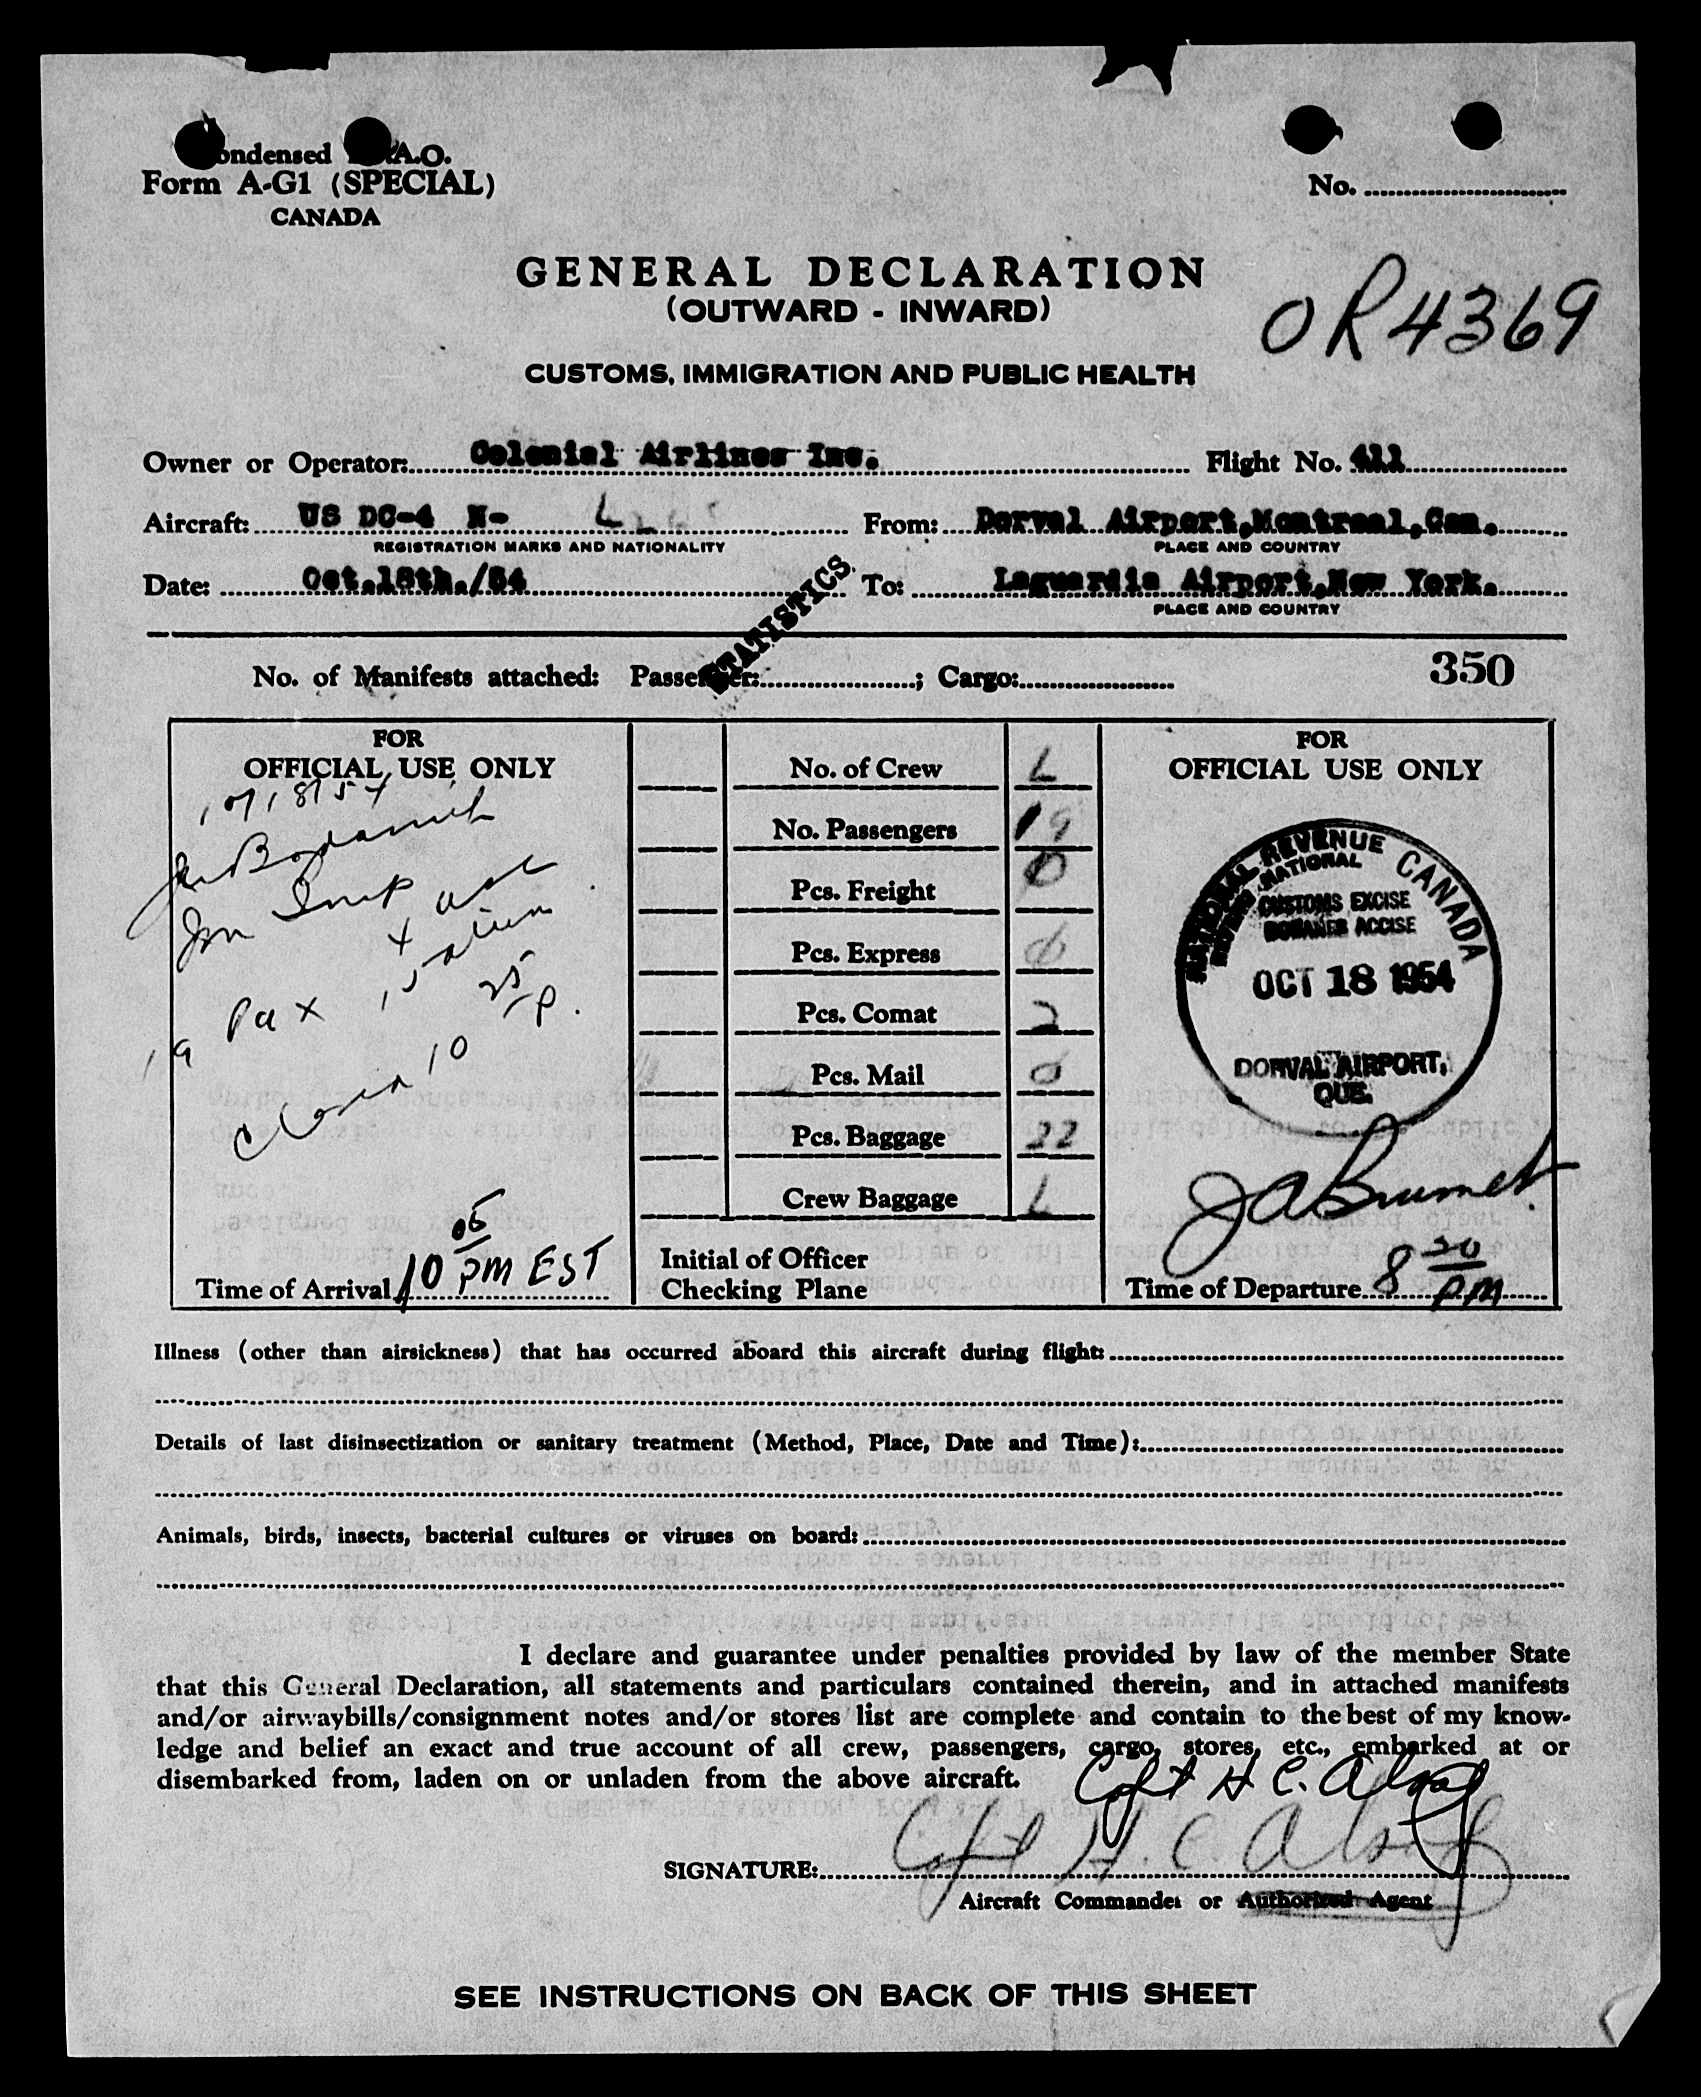 Condensed A.O.
Form A-G1 (SPECIAL)
CANADA
No.
GENERAL DECLARATION
(OUTWARD - INWARD)
OR4369
CUSTOMS, IMMIGRATION AND PUBLIC HEALTH
Owner or Operator: Colonial Airlines Inc. Flight No. 411
Aircraft: US DC-4 N- From: Dorval Airport,Montreal,Can.
REGISTRATION MARKS AND NATIONALITY PLACE AND COUNTRY
Date: Oct.18th./54 To: Laguardia Airport,New York.
PLACE AND COUNTRY
STATISTICS
No. of Manifests attached: Passenger: ; Cargo: 350
FOR
OFFICIAL USE ONLY
10/18/54
19 Pax
10 25 P.
Time of Arrival 10 06 PM EST
No. of Crew L
No. Passengers 19
Pcs. Freight 0
Pcs. Express 0
Pcs. Comat 2
Pcs. Mail 0
Pcs. Baggage 22
Crew Baggage L
Initial of Officer
Checking Plane
FOR
OFFICIAL USE ONLY
NATIONAL REVENUE CANADA
REVENU NATIONAL
CUSTOMS EXCISE
DOUANES ACCISE
OCT 18 1954
DORVAL AIRPORT,
QUE.
J A Brunet
Time of Departure 8 30 PM
Illness (other than airsickness) that has occurred aboard this aircraft during flight:
Details of last disinsectization or sanitary treatment (Method, Place, Date and Time):
Animals, birds, insects, bacterial cultures or viruses on board:
I declare and guarantee under penalties provided by law of the member State
that this General Declaration, all statements and particulars contained therein, and in attached manifests
and/or airwaybills/consignment notes and/or stores list are complete and contain to the best of my know-
ledge and belief an exact and true account of all crew, passengers, cargo, stores, etc., embarked at or
disembarked from, laden on or unladen from the above aircraft.
Capt H C.
SIGNATURE: Capt H. C.
Aircraft Commander or Authorized Agent
SEE INSTRUCTIONS ON BACK OF THIS SHEET